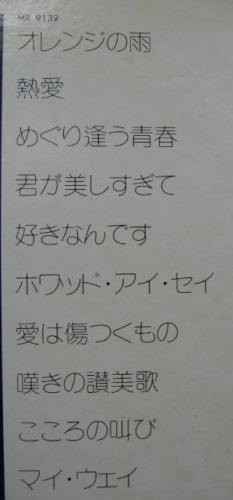 MR 9139
オレンジの雨
熱愛
めぐり逢う青春
君が美しすぎて
好きなんです
ホワッド・アイ・セイ
愛は傷つくもの
嘆きの讃美歌
こころの叫び
マイ・ウェイ